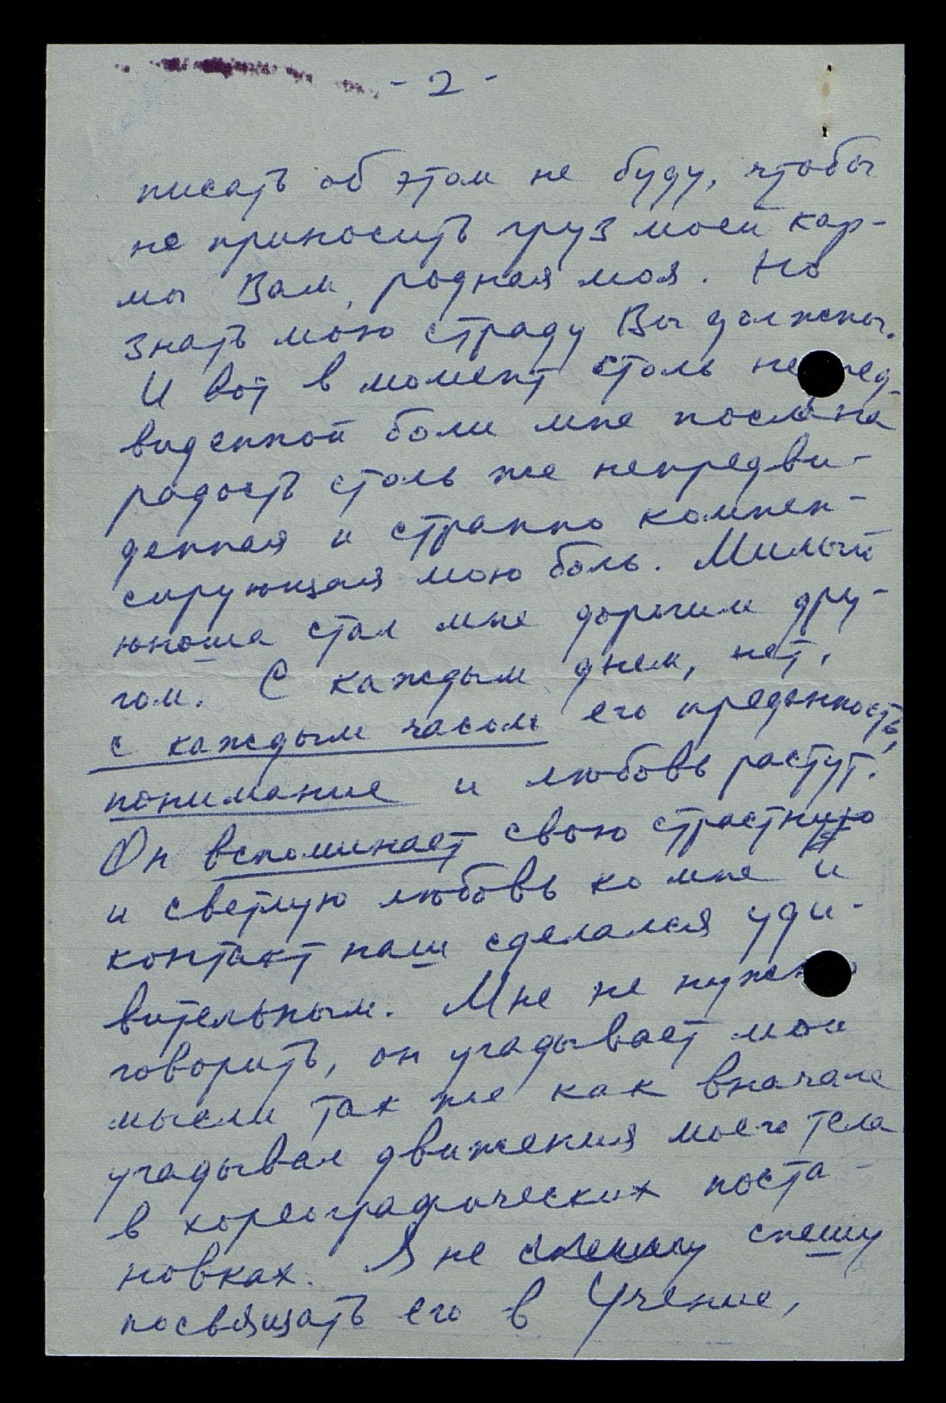 - 2 -
писать об этом не буду, чтобы
не приносить груз моей кар-
мы Вам, родная моя. Но
знать мою страду Вы должны.
И вот в момент столь непред-
виденной боли мне послана
радость столь же непредви-
денная и странно компен-
сирующая мою боль. Милый
юноша стал мне дорогим дру-
гом. С каждым днем, нет,
с каждым часом его преданность,
понимание и любовь растут.
Он вспоминает свою страстную
и светлую любовь ко мне и
контакт наш сделался уди-
вительным. Мне не нужно
говорить, он угадывает мои
мысли так же как вначале
угадывал движения моего тела
в хореографических поста-
новках. Я не спешу
посвящать его в Учение,